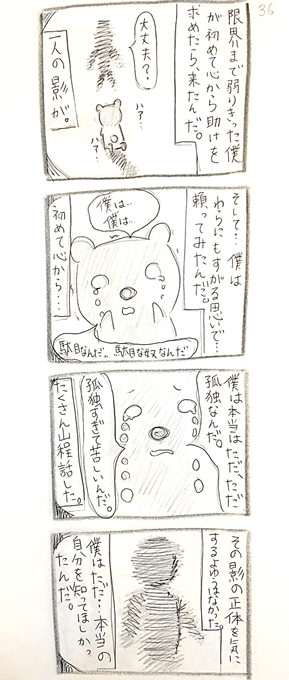 36
限界まで弱りきった僕
が初めて心から助けを
求めたら、来たんだ。
大丈夫?
ハァ…
ハァ…
人の影が。
そして…僕は
わらにもすがる思いで…
頼ってみたんだ。
僕は…
僕は…
初めて心から…
駄目なんだ、駄目な奴なんだ
僕は本当はただ、ただ
孤独なんだ。
孤独すぎて苦しいんだ。
たくさん山程話した。
その影の正体を気に
するよゆうはなかった。
僕はただ…本当の
自分を知ってほしかっ
たんだ。